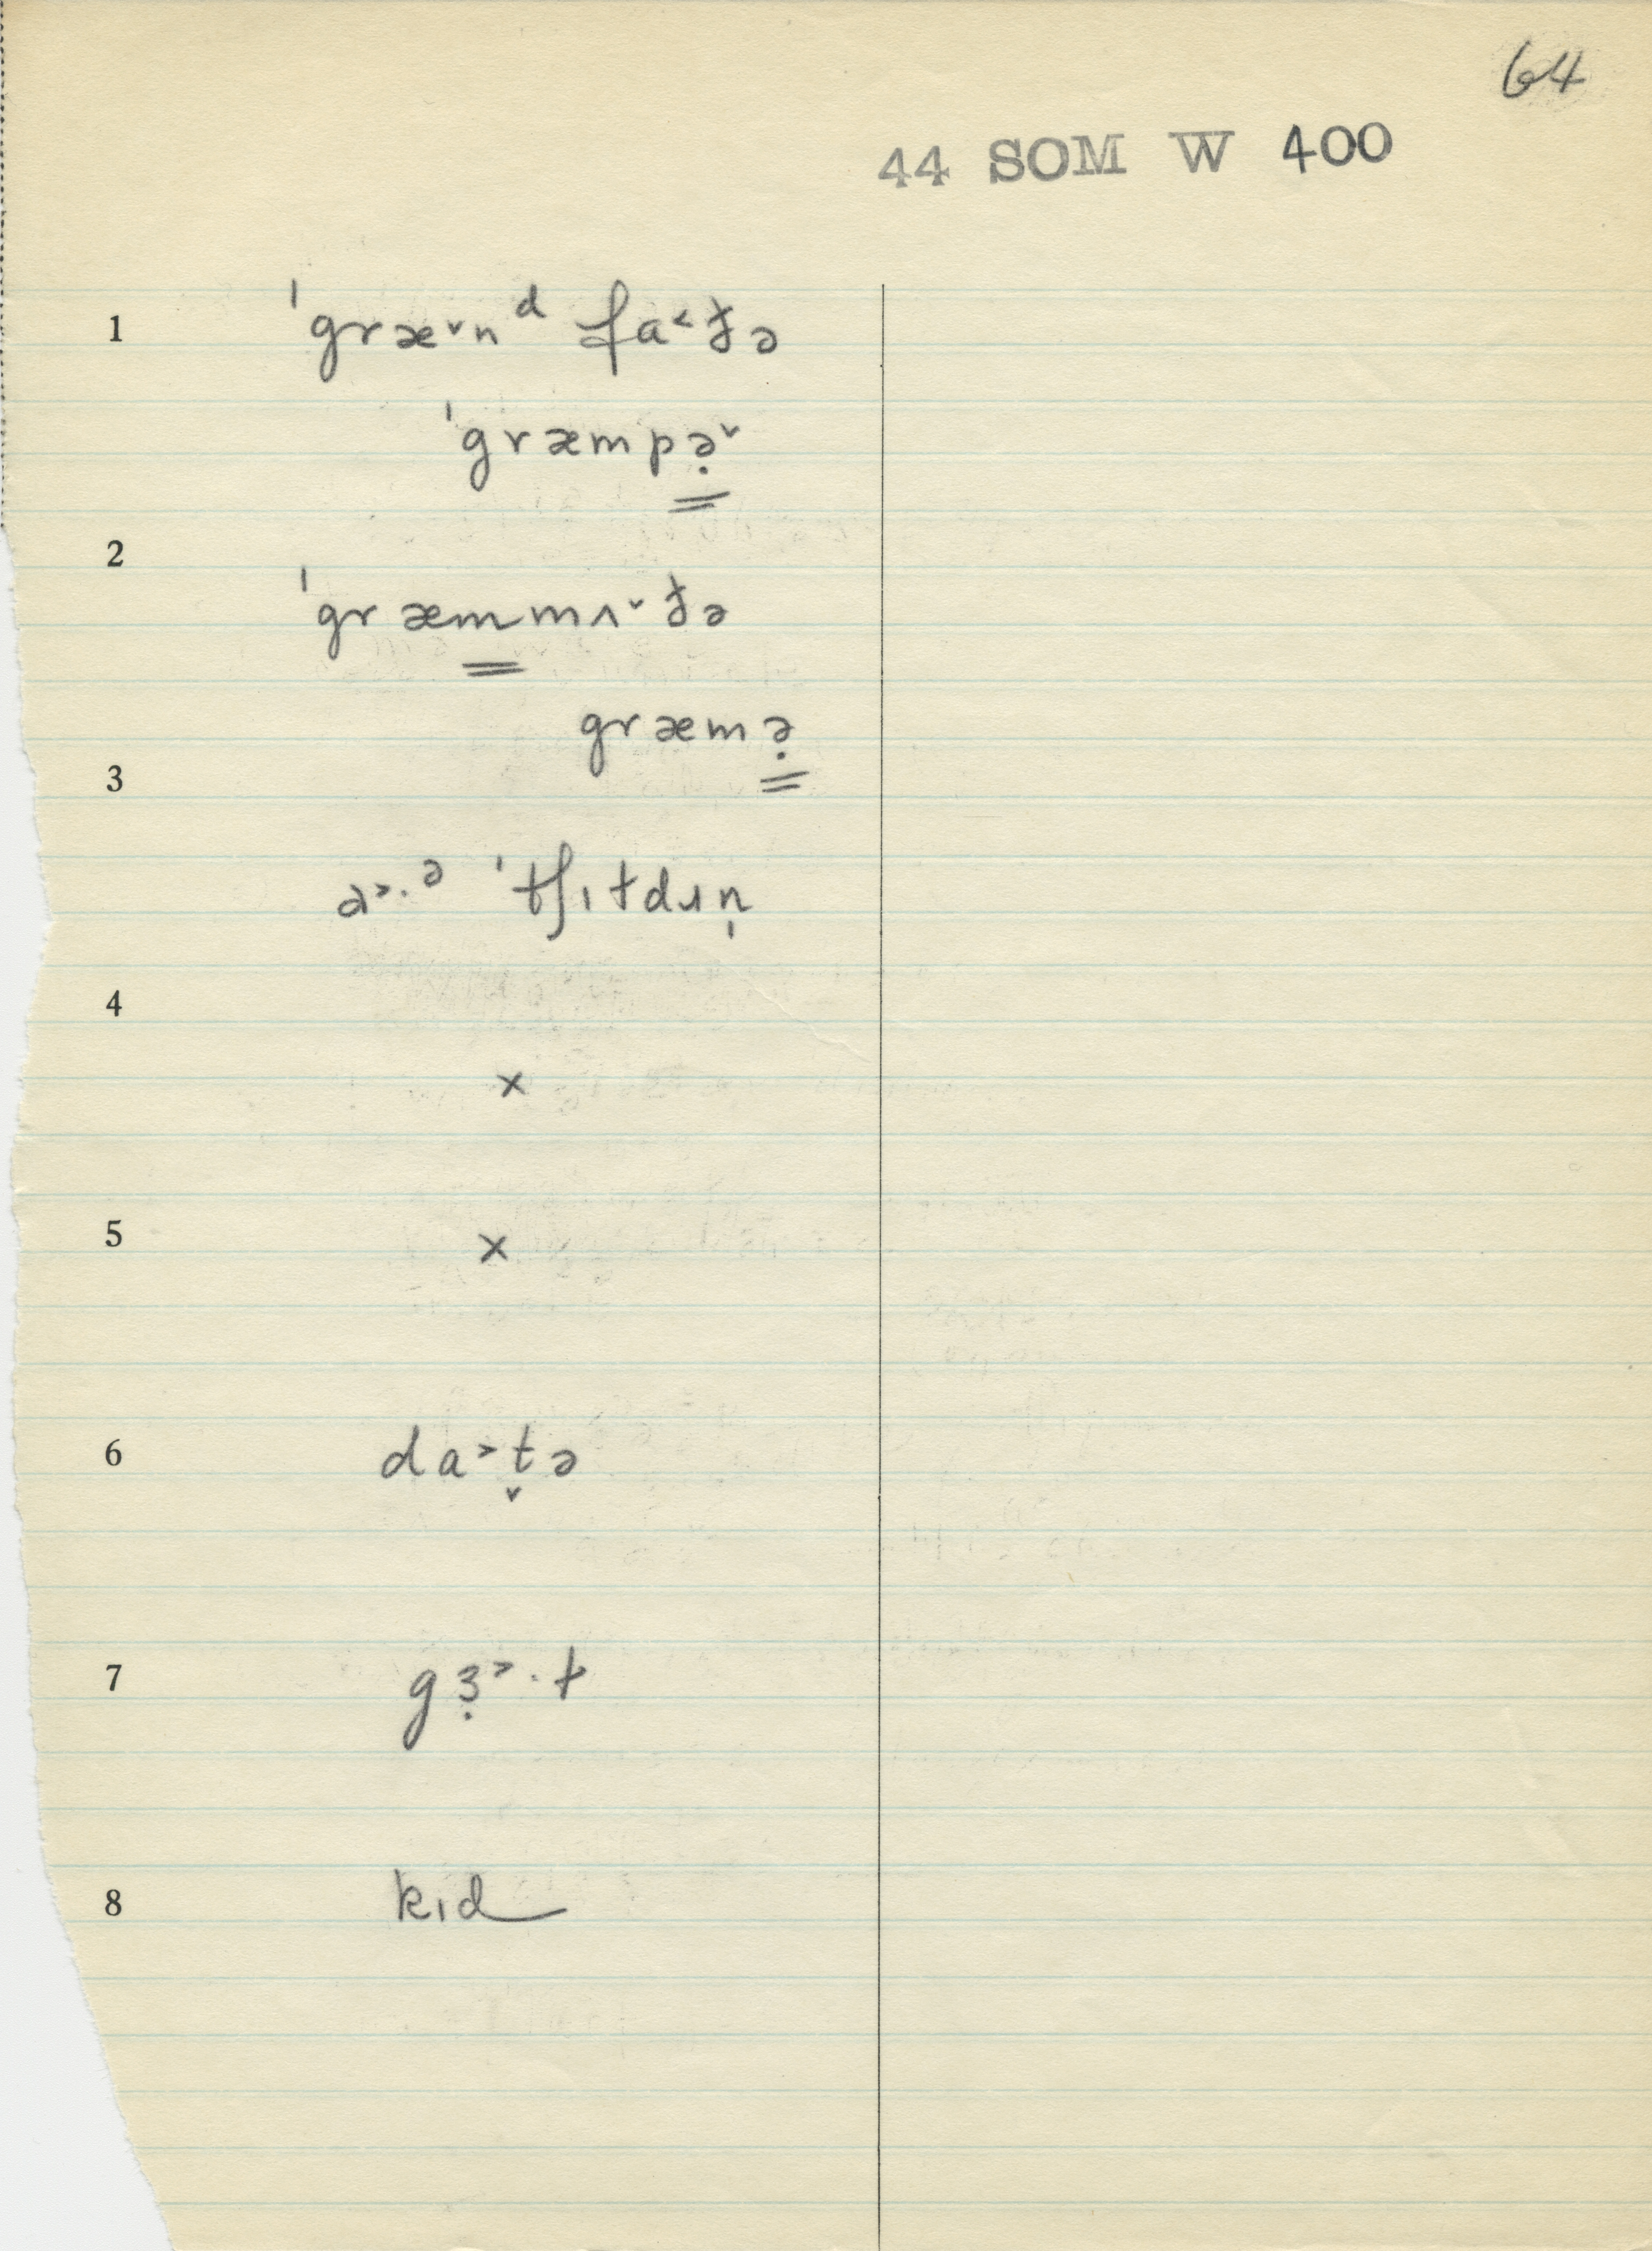 64
44 SOM W 400
1 ˈgræ˅nᵈ fa˂ðə
ˈgræmpə̣˅
2
ˈgræmmʌ˅ðə
græmə̣
3
a˃·ᵊ ˈtʃɪtdɹn̩
4
×
5 ×
6 da˃t̬ə
7 gɜ̣˃·ɫ
8 kɪd